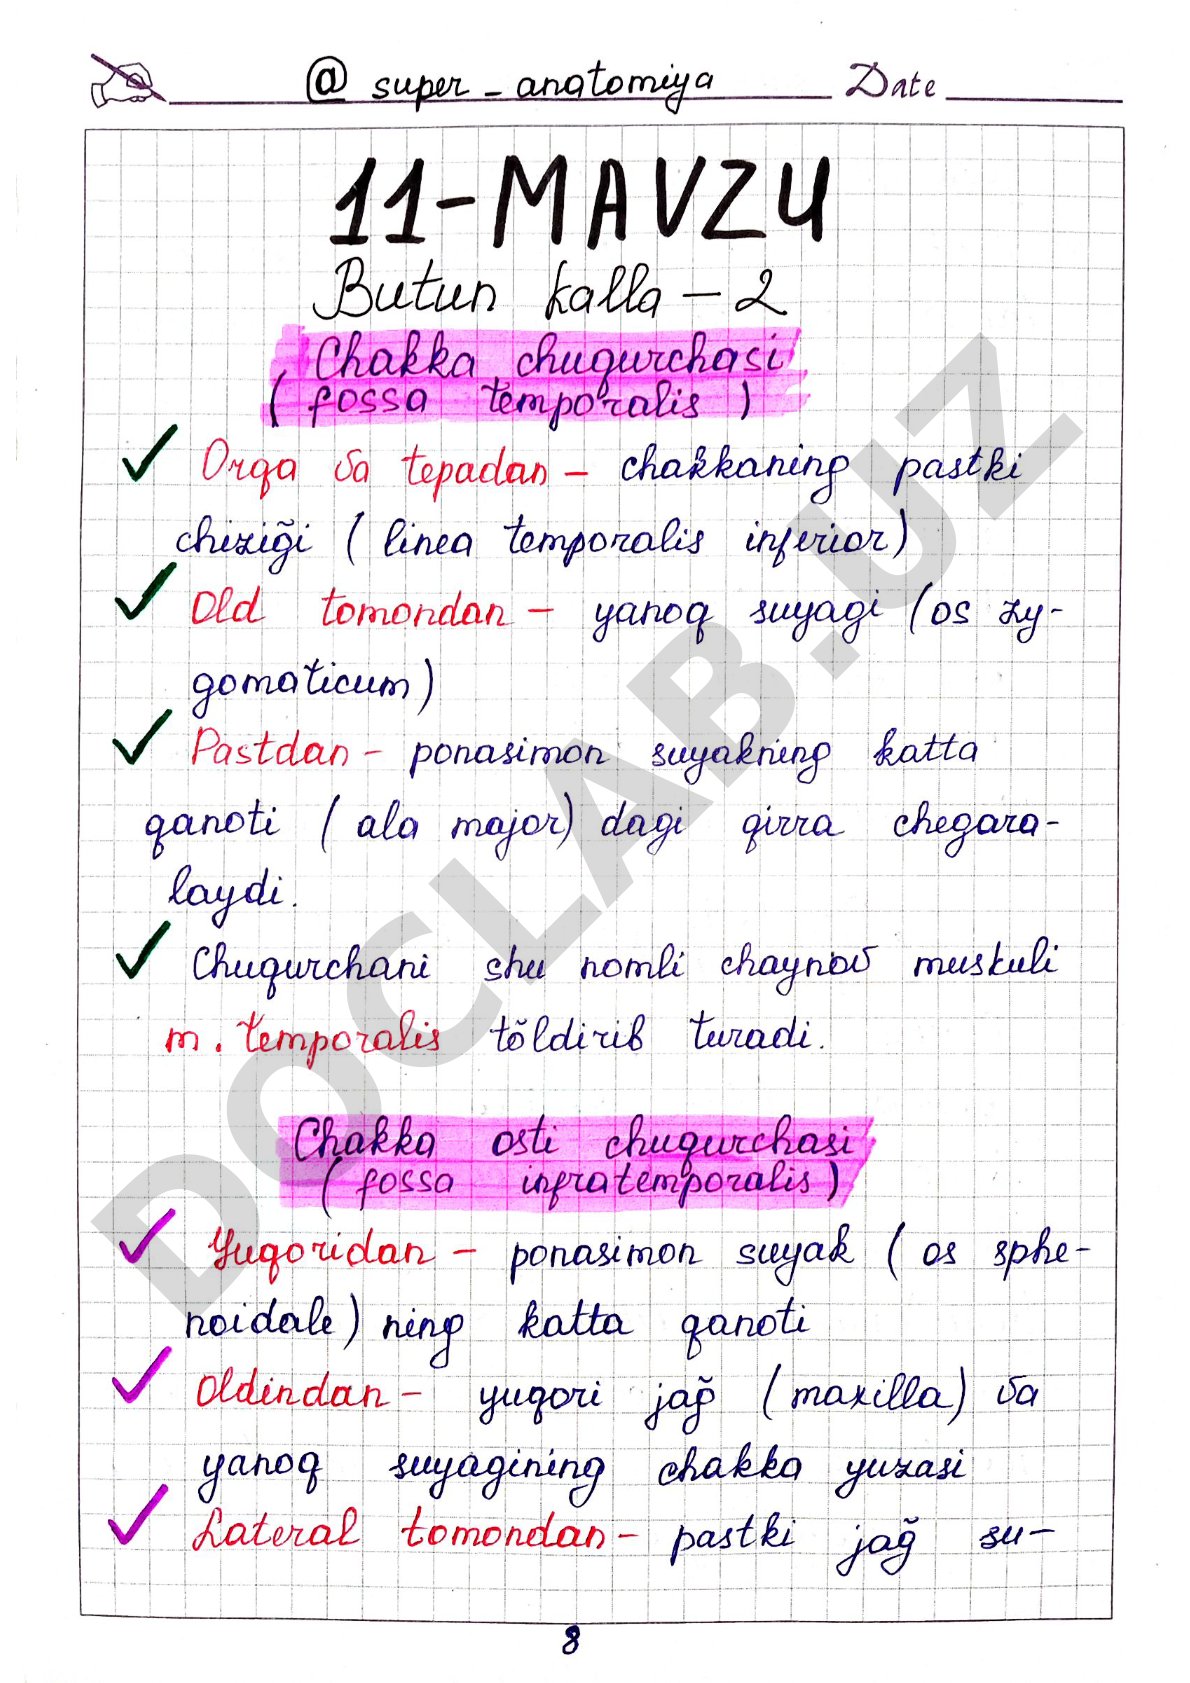 @ super_anatomiya Date
11-MAVZU
Butun kalla - 2
Chakka chuqurchasi
( fossa temporalis )
Orqa va tepadan - chakkaning pastki
chizig̃i ( linea temporalis inferior)
Old tomondan - yanoq suyagi (os zy-
gomaticum)
Pastdan - ponasimon suyakning katta
qanoti ( ala major) dagi qirra chegara-
laydi.
Chuqurchani shu nomli chaynov muskuli
m. temporalis tõldirib turadi.
Chakka osti chuqurchasi
( fossa infratemporalis )
Yuqoridan - ponasimon suyak ( os sphe-
noidale) ning katta qanoti
Oldindan - yuqori jag̃ (maxilla) va
yanoq suyagining chakka yuzasi
Lateral tomondan - pastki jag̃ su-
8
DOCLAB.UZ